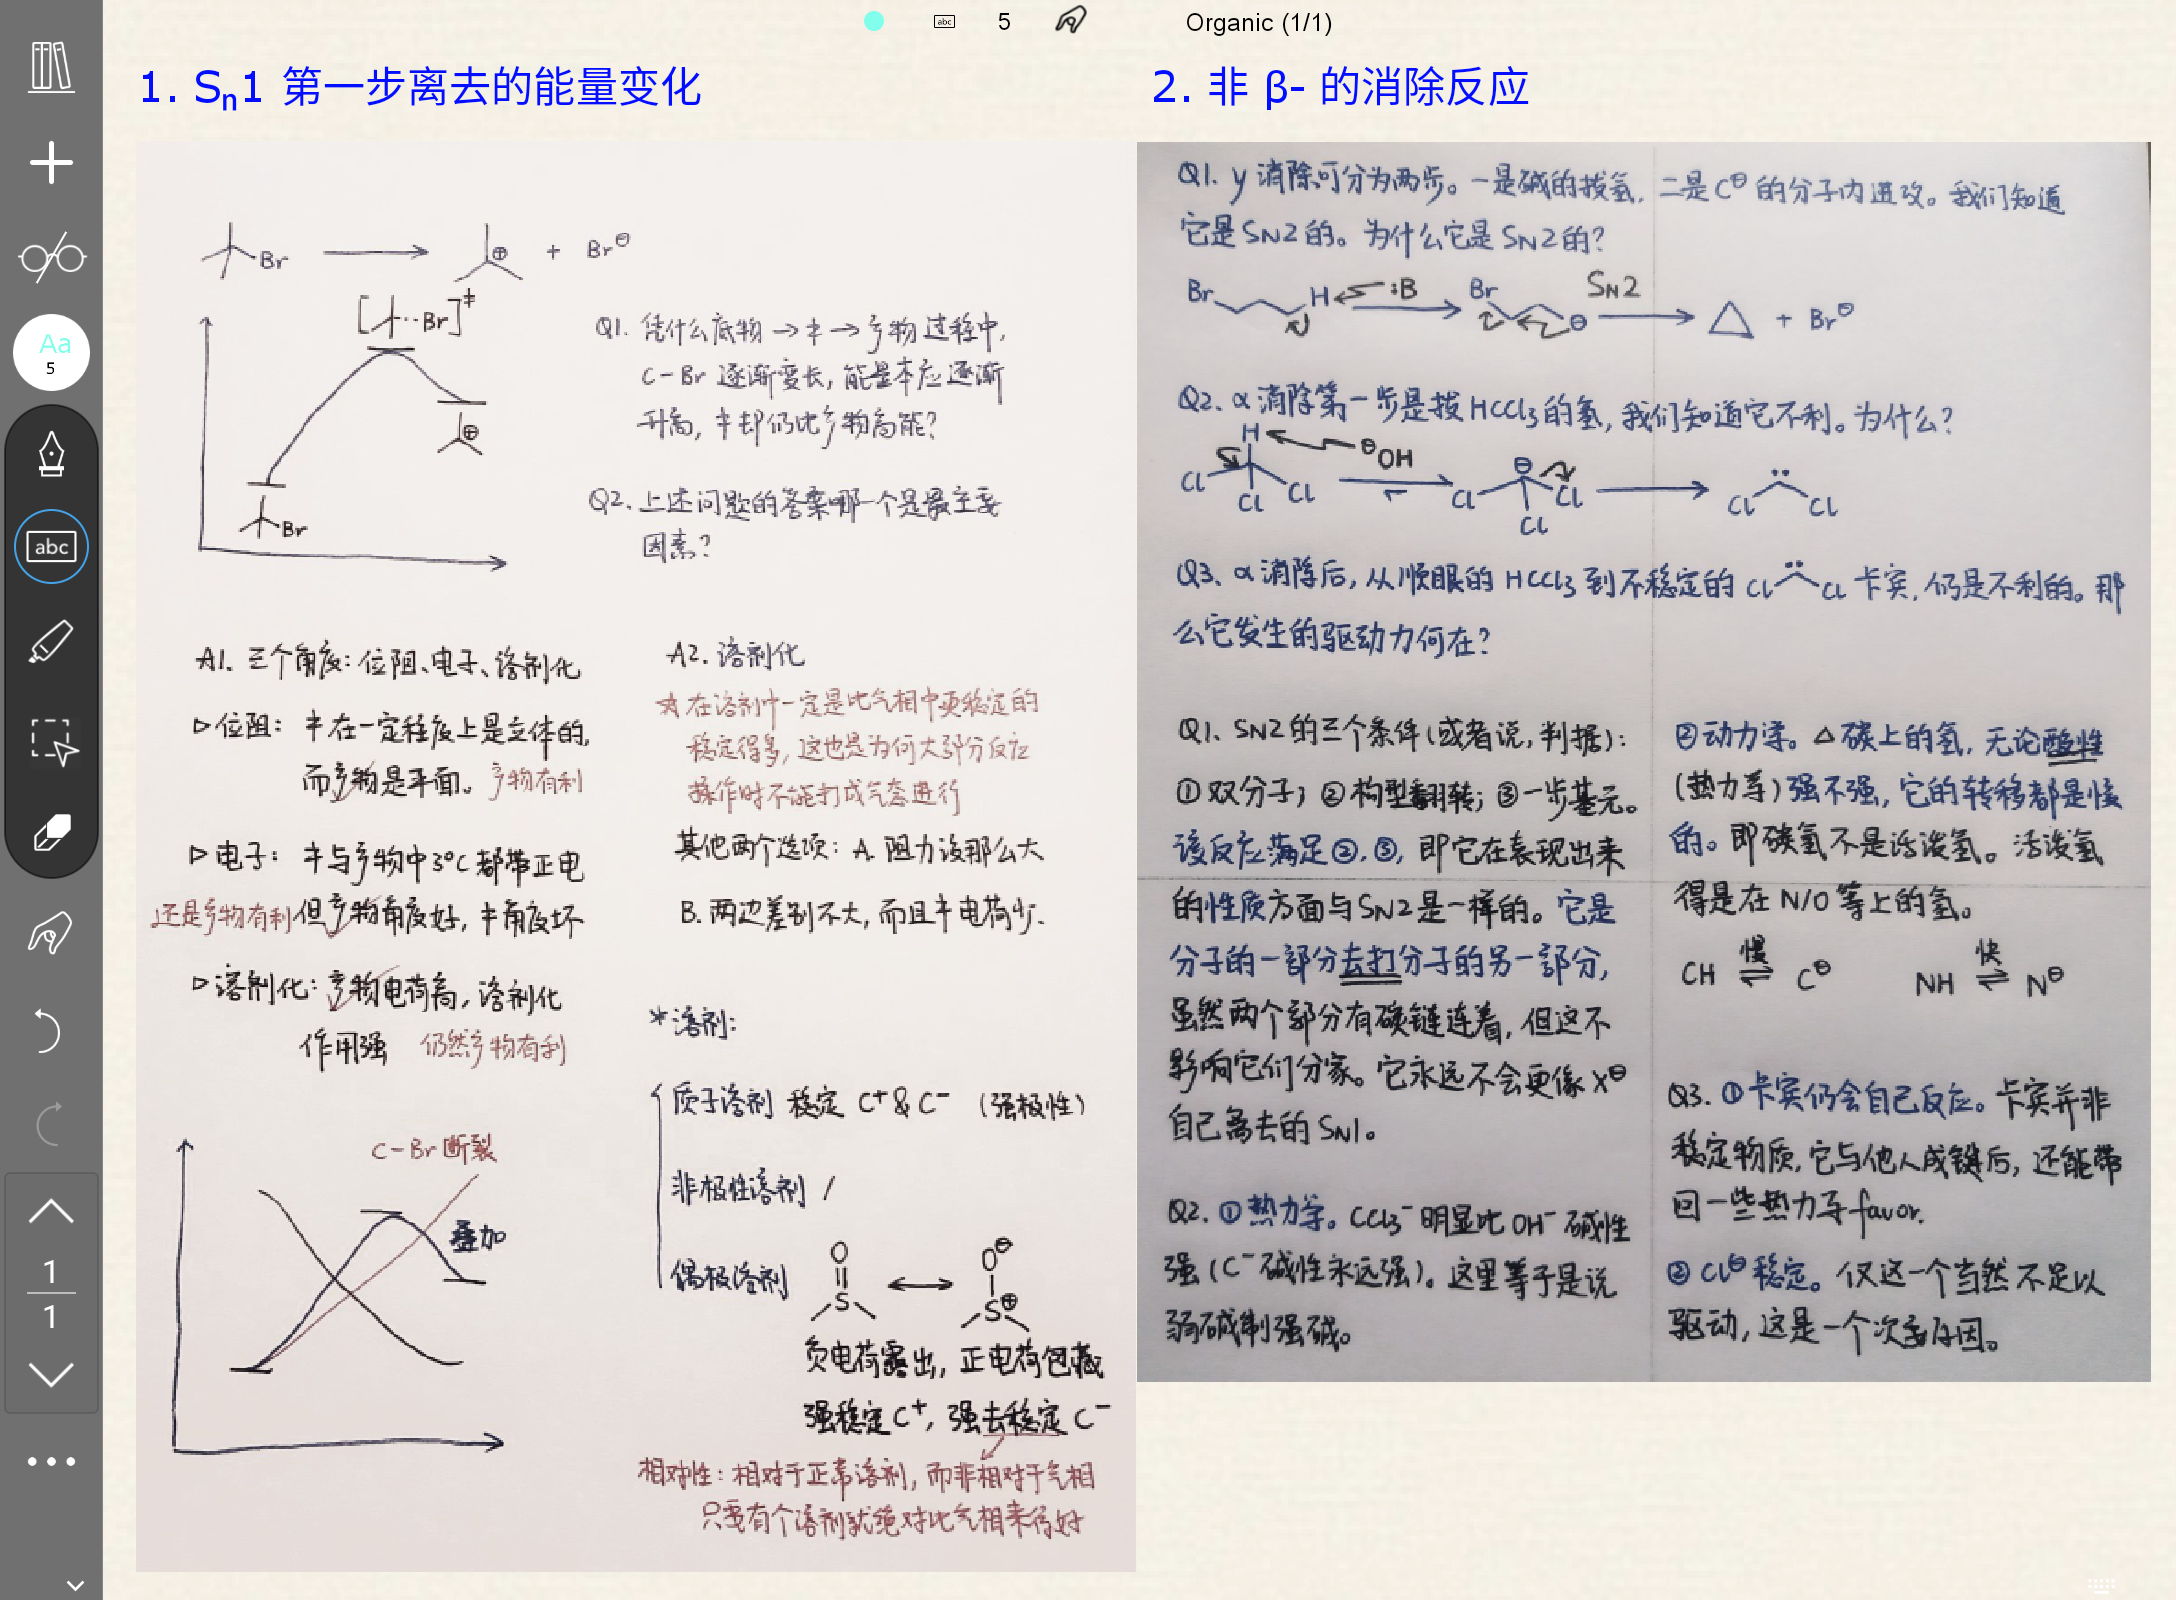 5
Organic (1/1)
Aa
5
abc
abc
1
1
1. Sn1 第一步离去的能量变化
Br
⊕
+ Br⊖
[ ···Br]‡
⊕
Br
Q1. 凭什么底物 → ‡ → 产物 过程中,
C-Br 逐渐变长, 能量本应逐渐
升高, ‡却仍比产物高能?
Q2. 上述问题的答案哪一个是最主要
因素?
A1. 三个角度: 位阻、电子、溶剂化
▷ 位阻: ‡在一定程度上是立体的,
而产物是平面。 产物有利
▷ 电子: ‡与产物中3°C都带正电
还是产物有利 但产物角度好, ‡角度坏
▷ 溶剂化: 产物电荷高, 溶剂化
作用强 仍然产物有利
C-Br 断裂
叠加
A2. 溶剂化
☆ 在溶剂中一定是比气相中更稳定的
稳定得多, 这也是为何大部分反应
操作时不能打成气态进行
其他两个选项: A. 阻力没那么大
B. 两边差别不大, 而且‡电荷少.
* 溶剂:
质子溶剂 稳定 C⁺ & C⁻ (强极性)
非极性溶剂 /
偶极溶剂
O
S
O⊖
S⊕
负电荷露出, 正电荷包藏
强稳定C⁺, 强去稳定C⁻
相对性: 相对于正常溶剂, 而非相对于气相
只要有个溶剂就绝对比气相来得好
2. 非 β- 的消除反应
Q1. γ 消除可分为两步。一是碱的拔氢, 二是C⊖的分子内进攻。我们知道
它是SN2的。为什么它是SN2的?
Br H :B Br ⊖ SN2 + Br⊖
Q2. α消除第一步是拔HCCl3的氢, 我们知道它不利。为什么?
H ⊖OH
Cl Cl Cl
⊖ Cl Cl Cl
Cl Cl
Q3. α消除后, 从顺眼的 HCCl3 到不稳定的 Cl Cl 卡宾, 仍是不利的。那
么它发生的驱动力何在?
Q1. SN2的三个条件(或者说, 判据):
① 双分子; ② 构型翻转; ③ 一步基元。
该反应满足②,③, 即它在表现出来
的性质方面与SN2是一样的。它是
分子的一部分去打分子的另一部分,
虽然两个部分有碳链连着, 但这不
影响它们分家。它永远不会更像X⊖
自己离去的SN1。
Q2. ①热力学。CCl3⁻明显比OH⁻碱性
强(C⁻碱性永远强)。这里等于是说
弱碱制强碱。
②动力学。△ 碳上的氢, 无论酸性
(热力学)强不强, 它的转移都是慢
的。即碳氢不是活泼氢。活泼氢
得是在N/O等上的氢。
CH 慢 ⇌ C⊖ NH 快 ⇌ N⊖
Q3. ①卡宾仍会自己反应。卡宾并非
稳定物质, 它与他人成键后, 还能带
回一些热力学favor.
② Cl⊖稳定。仅这一个当然不足以
驱动, 这是一个次要原因。